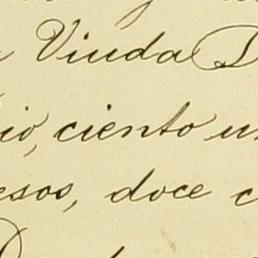 Viuda
io, ciento un
esos, doce c